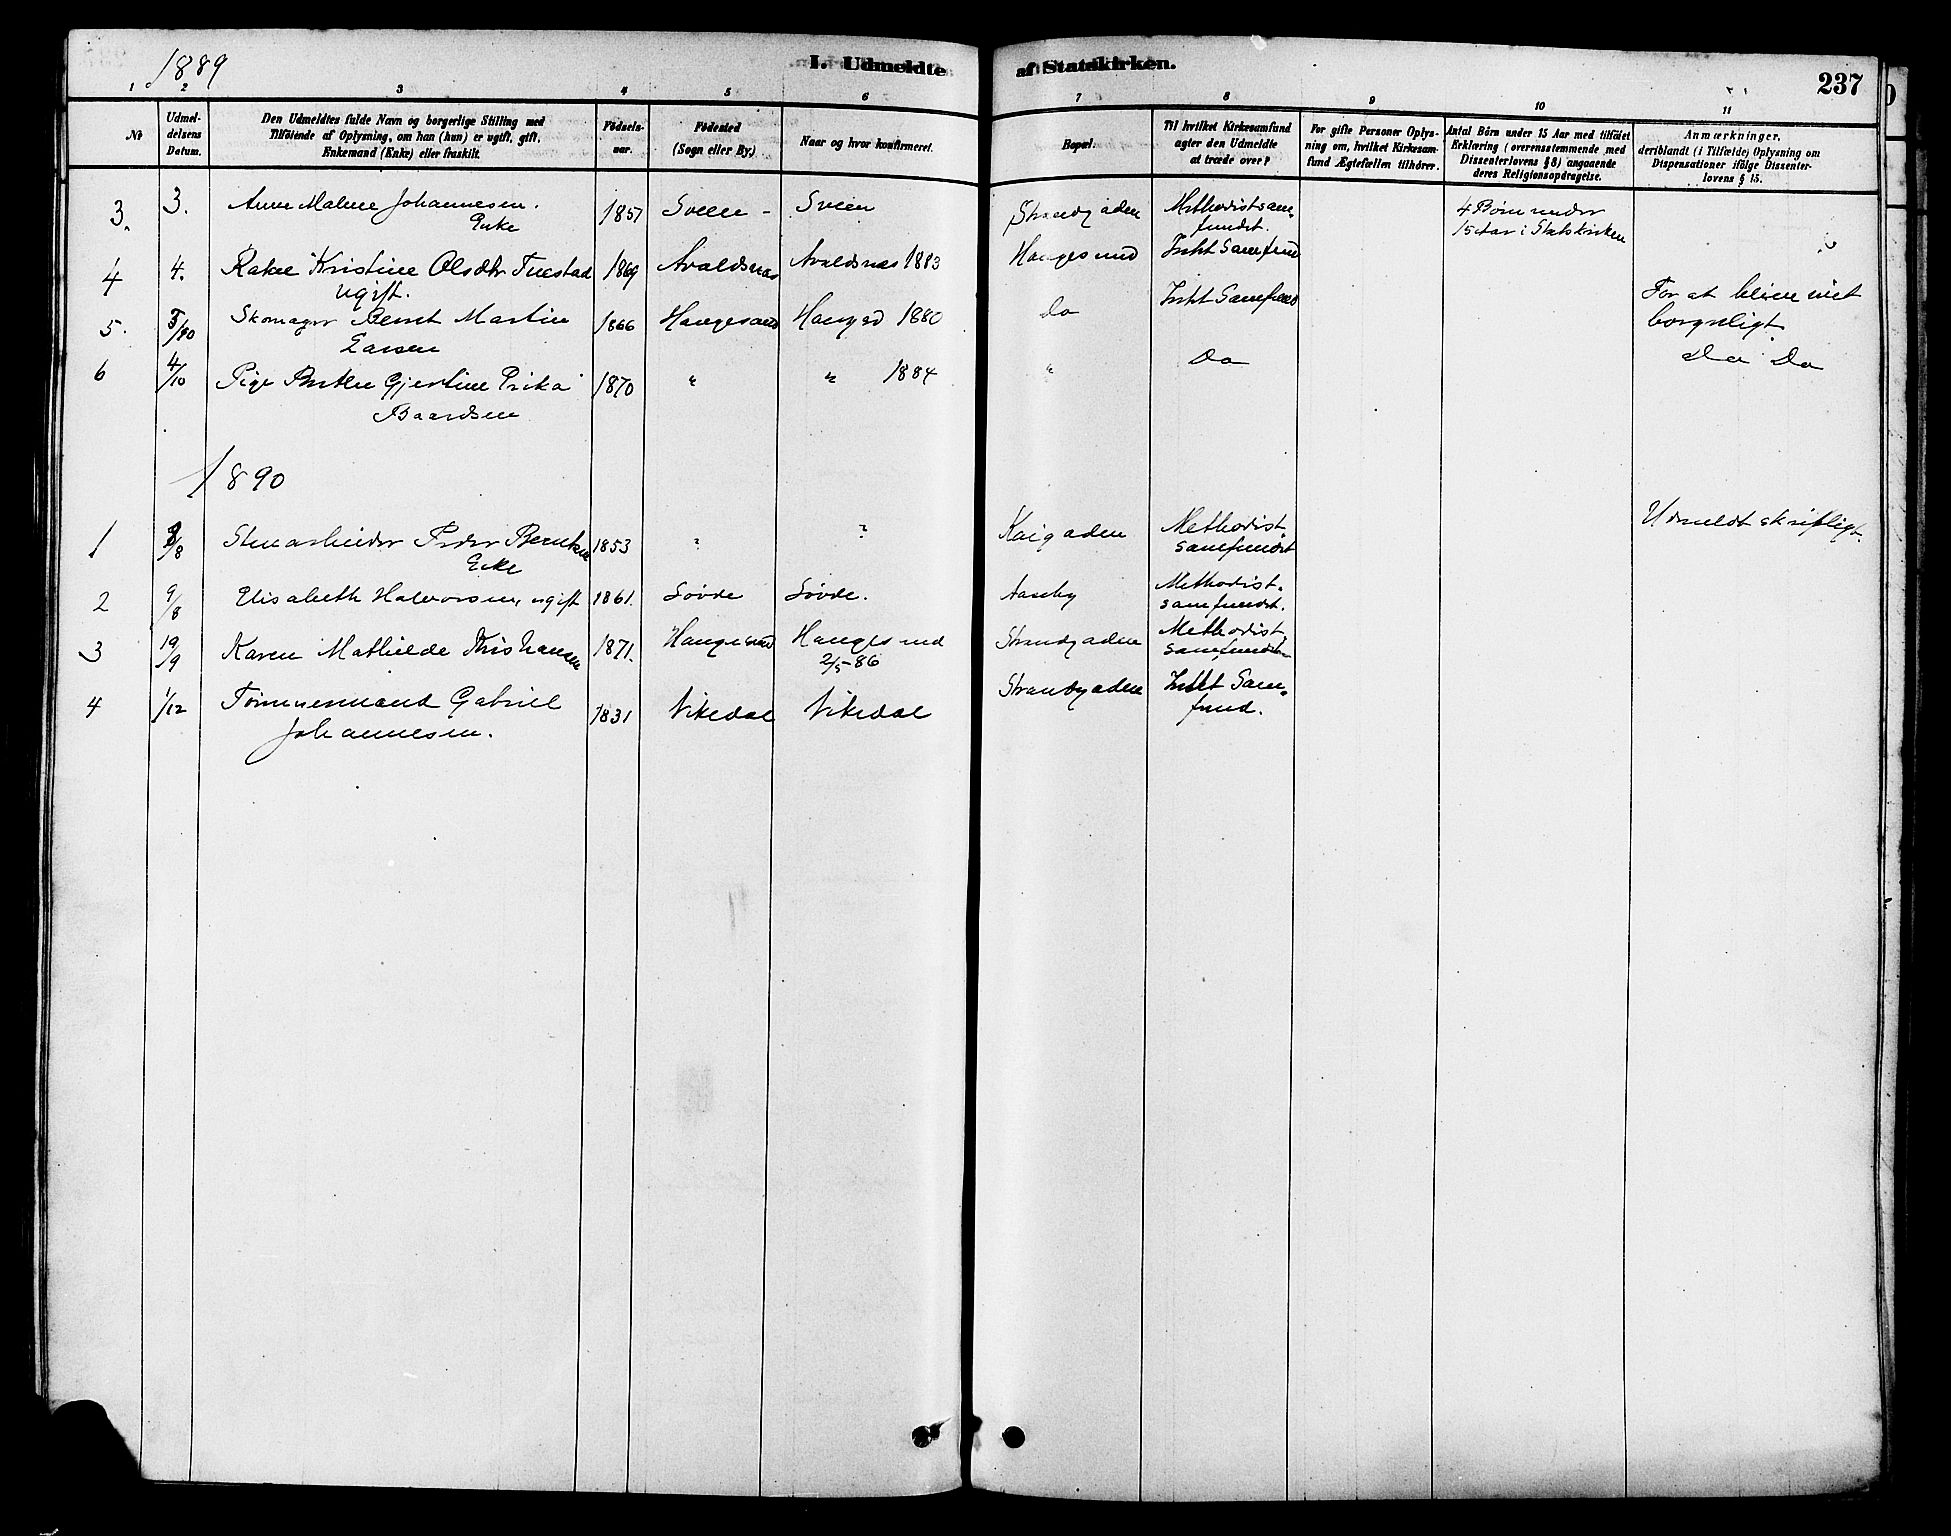 1889
I. Udmeldte af Statskirken.
237
1 2 3 4 5 6 7 8 9 10 11
No
Udmel-
delsens
Datum.
Den Udmeldtes fulde Navn og borgerlige Stilling med
Tilföiende af Oplysning, om han (hun) er ugift, gift,
Enkemand (Enke) eller fraskilt.
Födsels-
aar.
Födested
(Sogn eller By.)
Naar og hvor konfirmeret.
Bopæl.
Til hvilket Kirkesamfund
agter den Udmeldte
at træde over?
For gifte Personer Oplys-
ning om, hvilket Kirkesam-
fund Ægtefællen tilhörer.
Antal Börn under 15 Aar med tilföiet
Erklæring (overensstemmende med
Dissenterlovens § 8) angaaende
deres Religionsopdragelse.
Anmærkninger,
deriblandt (i Tilfælde) Oplysning om
Dispensationer ifölge Dissenter-
lovens § 15.
3. 3. Anne Malene Johannesen. 1857 Sveen - Sveen Strandgaden Methodistsam-
Enke fundet. 4 Börn under
15 Aar i Statskirken
4 4. Kristine Olsdtr 1869 Avaldsnæs Avaldsnæs 1883 Haugesund Intet Samfund
ugift.
5. Skomager Berret Martin 1866 Haugesund Haugsd 1880 Do Intet Samfund For at blive viet
Larsen borgerligt.
6 4/10 Pige Gjertine 1870 " " 1884 " Do Do Do
Baardsen
1890
1 /8 Stenarbeider Peder Berntsen 1853 " " Kaigaden Methodist Udmeldt skriftligt.
Enke samfundet
2 9/8 Elisabeth Halvorsen, ugift 1861. Sövde Sövde. Aasby Methodist-
samfundet.
3 19/9 Karen Mathilde Kristiansen 1871. Haugesund Haugesund Strandgaden Methodist-
2/5-86 samfundet
4 1/12 Tömmermand Gabriel 1831 Vikedal Vikedal Strandgaden Intet Sam-
Johannesen. fund.